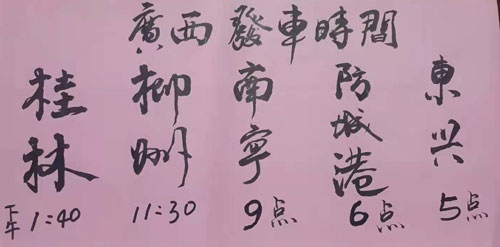 廣西發車時間
桂林
下午1:40
柳州
11:30
南寧
9点
防城港
6点
東兴
5点